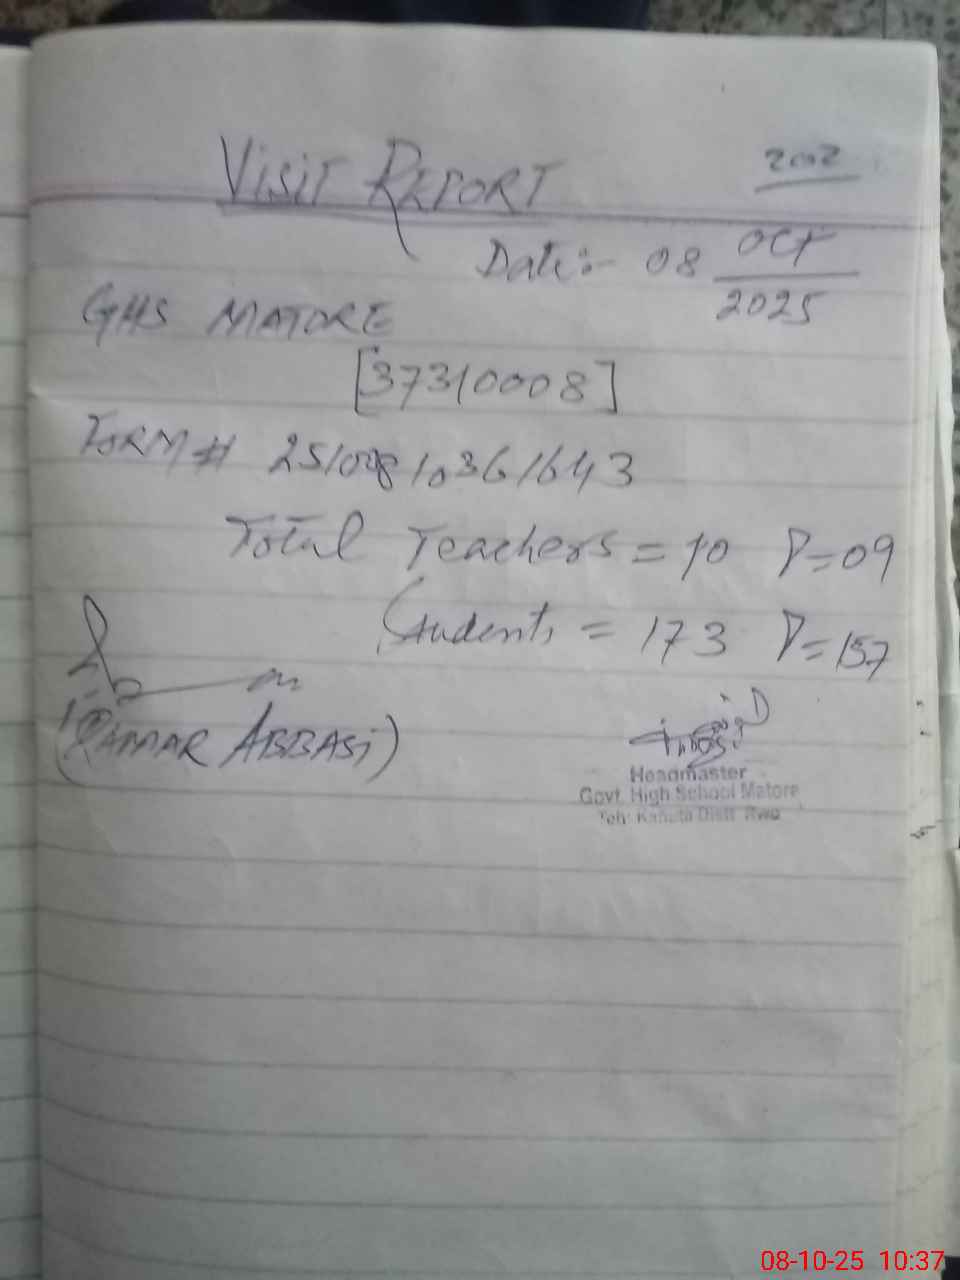 VISIT REPORT
Date:- 08 Oct
2025
GHS MATORE
[37310008]
FORM # 251008 10361643
Total Teachers = 10 P=09
Students = 173 P=157
(QAMAR ABBASI)
Headmaster
Govt. High School Matore
Teh: Kahuta Distt. Rwp
08-10-25 10:37